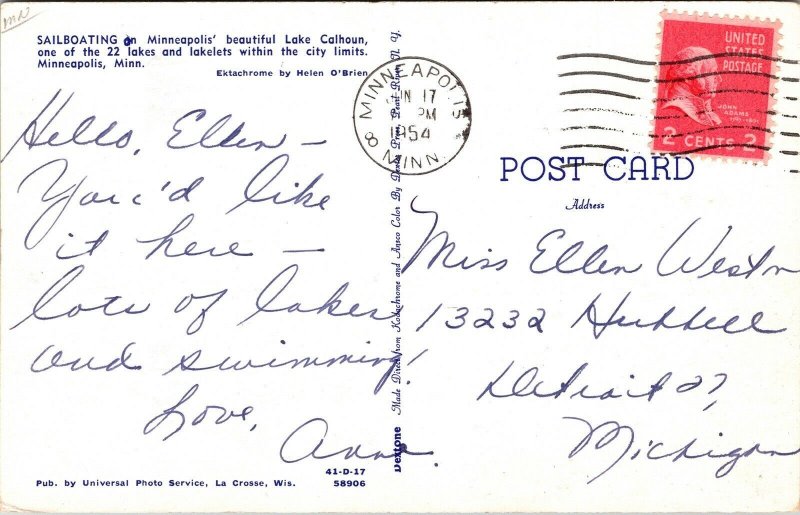 MN
SAILBOATING on Minneapolis' beautiful Lake Calhoun,
one of the 22 lakes and lakelets within the city limits.
Minneapolis, Minn.
Ektachrome by Helen O'Brien
Hello, Ellen —
You'd like
it here —
lots of lakes
and swimming!
Love,
Anne.
41-D-17
Pub. by Universal Photo Service, La Crosse, Wis. 58906
Dextone Made Direct from Kodachrome and Ansco Color By Dexter Press, Pearl River, N. Y.
MINNEAPOLIS
JUN 17
PM
1954
8 MINN.
UNITED
STATES
POSTAGE
JOHN
ADAMS
2 CENTS 2
POST CARD
Address
Miss Ellen Weston
13232 Hubbell
Detroit 27,
Michigan